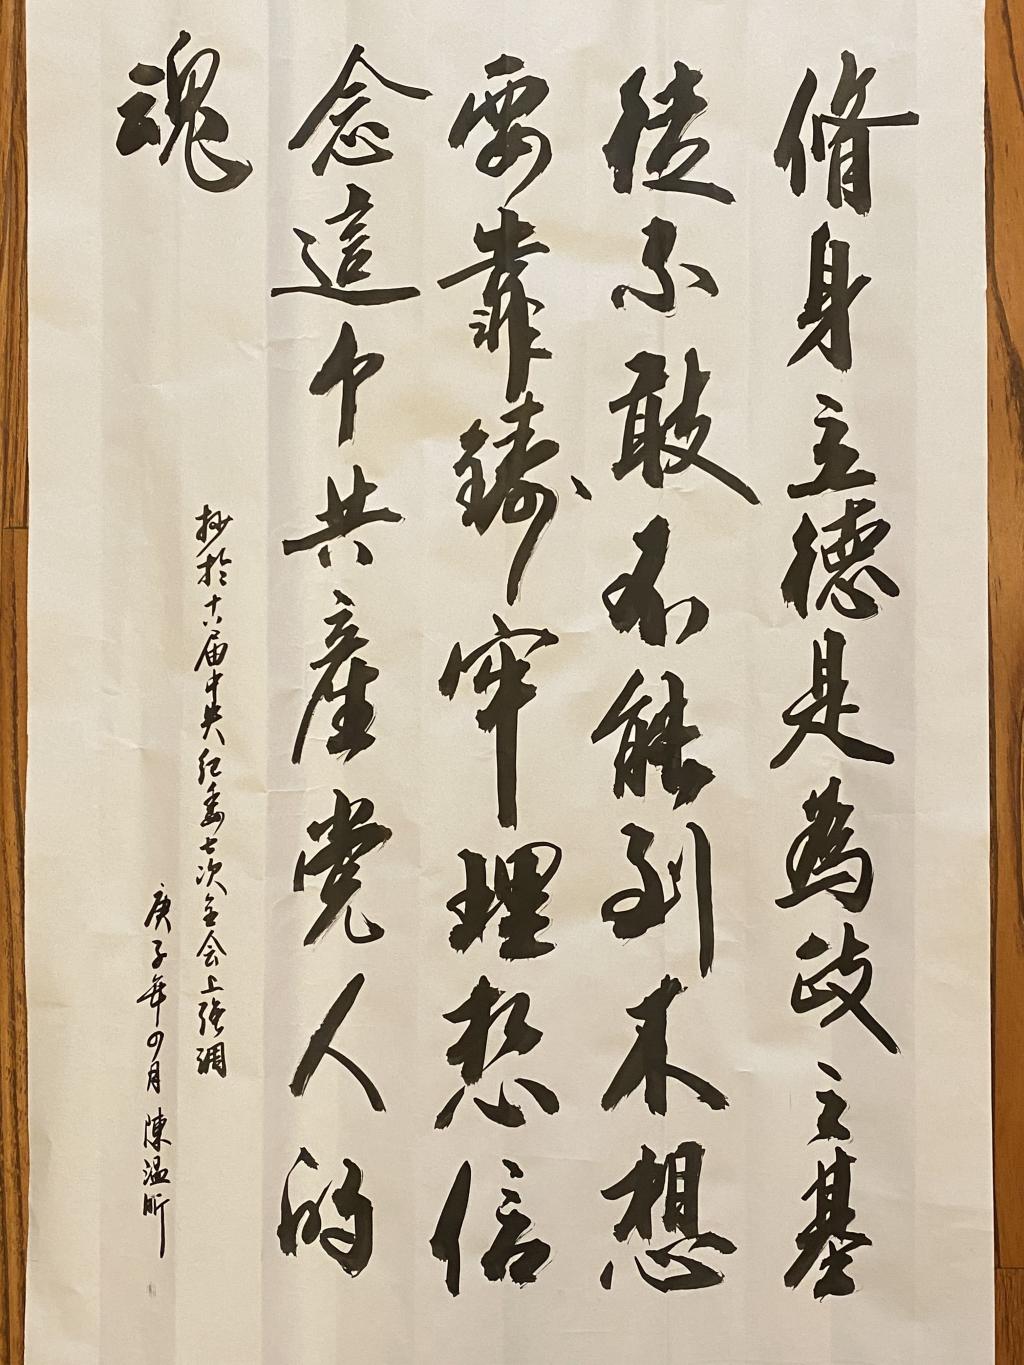 脩身立德是為政之基
從不敢不能到不想
要靠鑄牢理想信
念這个共產党人的
魂
抄於十八届中央纪委七次全会上强调
庚子年四月 陳温昕